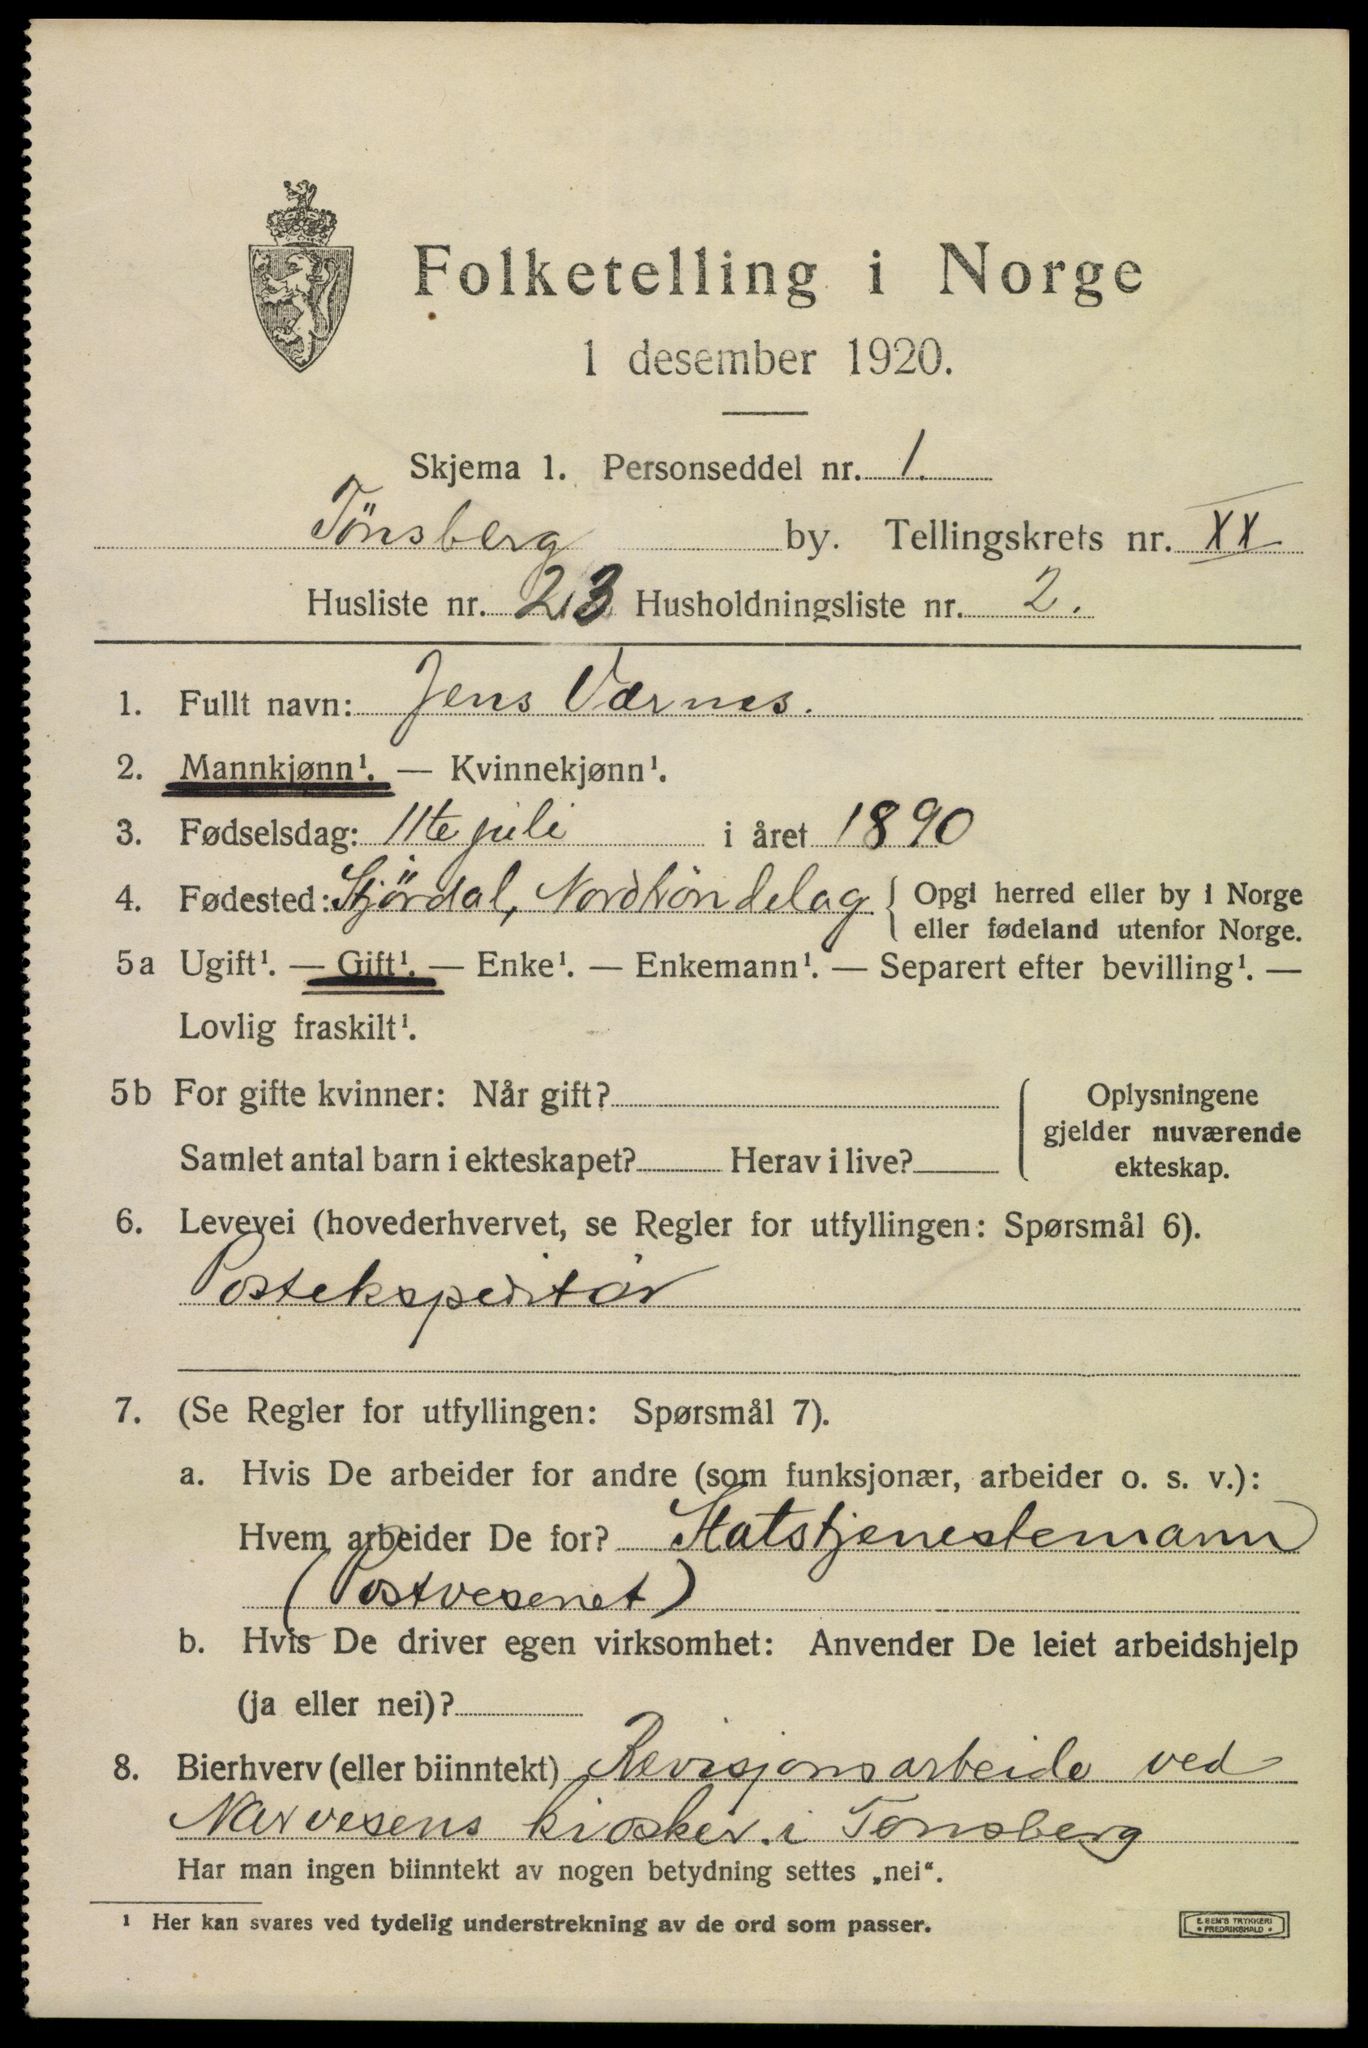 Folketelling i Norge
1 desember 1920.
Skjema 1. Personseddel nr. 1.
Tönsberg by. Tellingskrets nr. XX
Husliste nr. 23 Husholdningsliste nr. 2.
1. Fullt navn: Jens Værnes.
2. Mannkjønn¹. — Kvinnekjønn¹.
3. Fødselsdag: 11te juli i året 1890
4. Fødested: Stjördal, Nordtröndelag { Opgi herred eller by i Norge
eller fødeland utenfor Norge.
5a Ugift¹. — Gift¹. — Enke¹. — Enkemann¹. — Separert efter bevilling¹. —
Lovlig fraskilt¹.
5b For gifte kvinner: Når gift? Oplysningene
gjelder nuværende
Samlet antal barn i ekteskapet? Herav i live? ekteskap.
6. Levevei (hovederhvervet, se Regler for utfyllingen: Spørsmål 6).
Postekspeditör
7. (Se Regler for utfyllingen: Spørsmål 7).
a. Hvis De arbeider for andre (som funksjonær, arbeider o. s. v.):
Hvem arbeider De for? Statstjenestemann
(Postvesenet)
b. Hvis De driver egen virksomhet: Anvender De leiet arbeidshjelp
(ja eller nei)?
8. Bierhverv (eller biinntekt) Revisjonsarbeide ved
Narvesens kiosker i Tönsberg
Har man ingen biinntekt av nogen betydning settes „nei“.
¹ Her kan svares ved tydelig understrekning av de ord som passer.
E. SEM'S TRYKKERI
• FREDRIKSHALD •